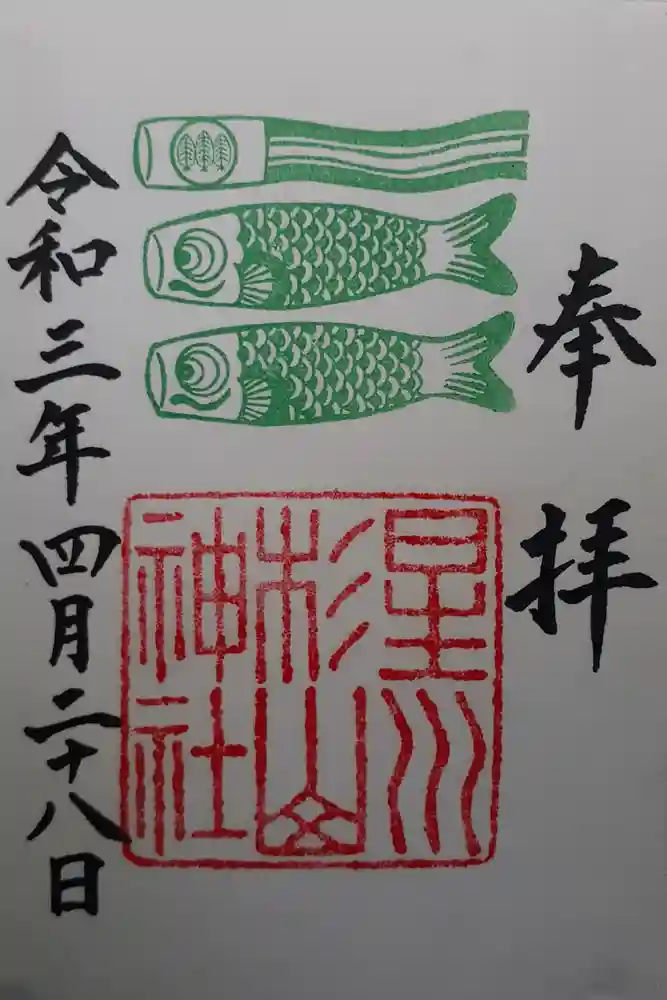 奉拝
星川
杉山
神社
令和三年四月二十八日